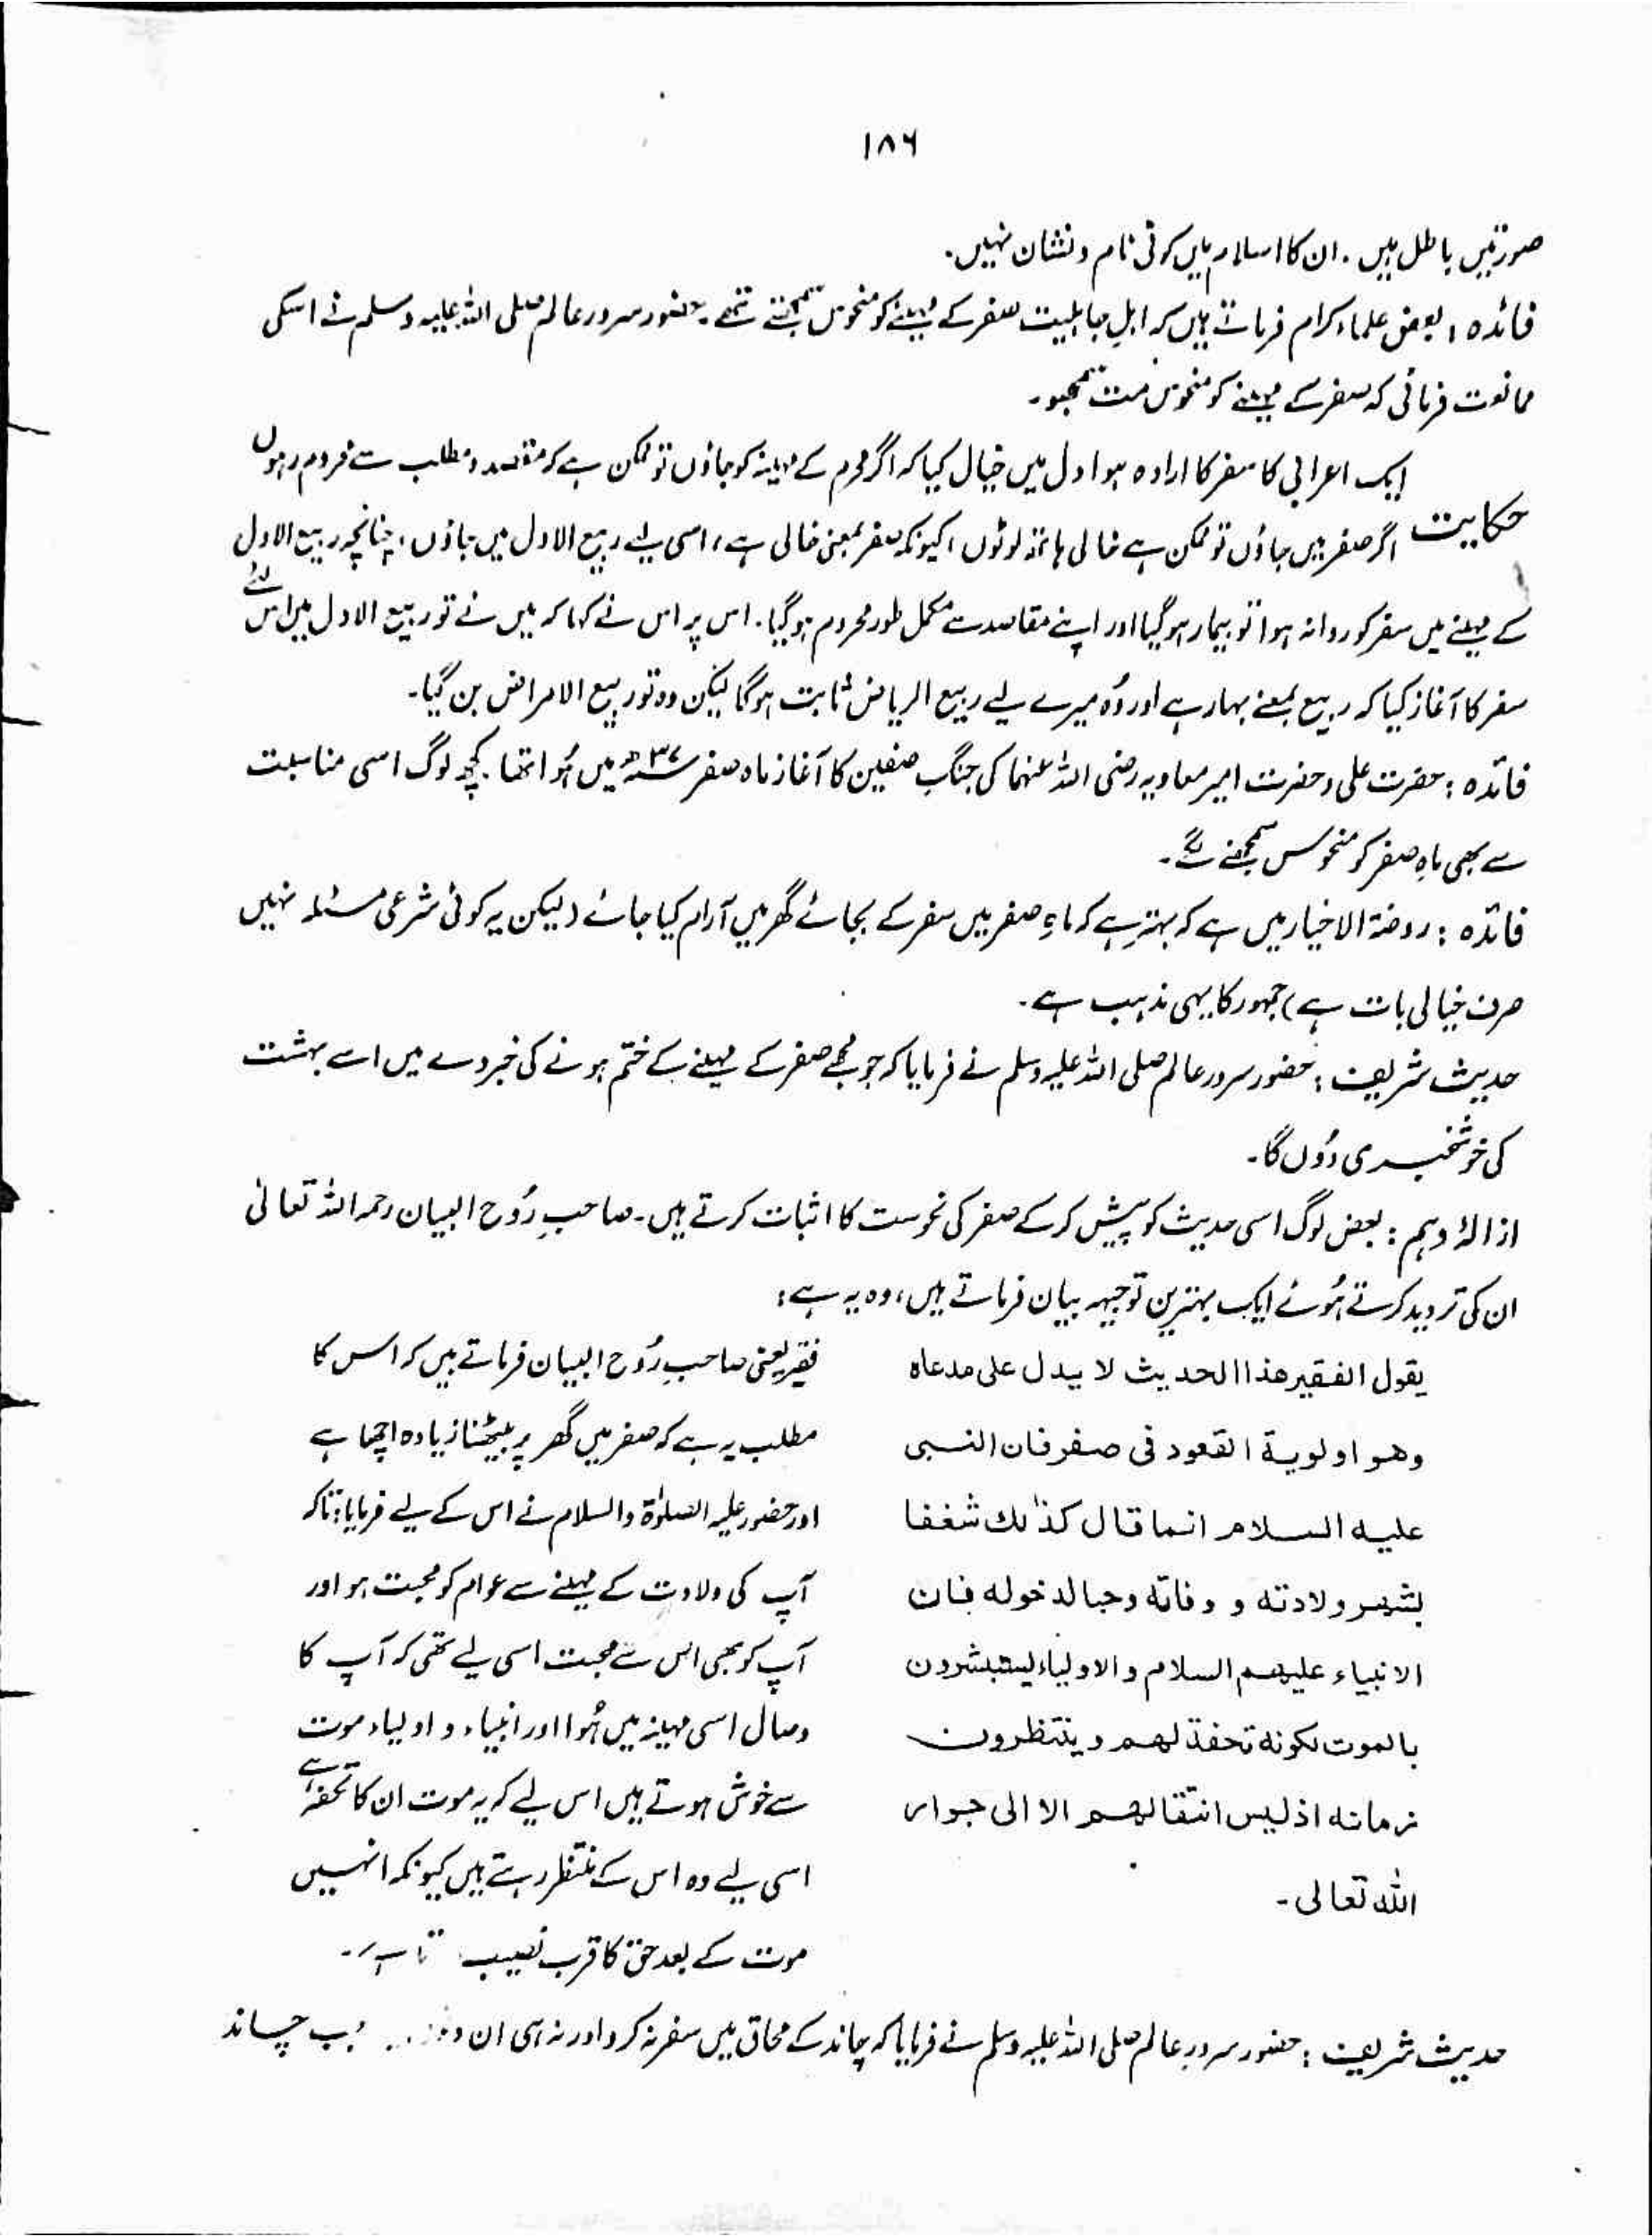 ۱۸۶
صورتیں باطل ہیں۔ ان کا اسلام میں کوئی نام و نشان نہیں۔
فائدہ : بعض علماء کرام فرماتے ہیں کہ اہلِ جاہلیت صفر کے مہینے کو منحوس سمجھتے تھے۔ حضور سرور عالم صلی اللہ علیہ وسلم نے اسکی
ممانعت فرمائی کہ صفر کے مہینے کو منحوس مت سمجھو۔
ایک اعرابی کا سفر کا ارادہ ہوا دل میں خیال کیا کہ اگر محرم کے مہینہ کو جاؤں تو ممکن ہے کہ مقصد و مطلب سے محروم رہوں
حکایت اگر صفر میں جاؤں تو ممکن ہے خالی ہاتھ لوٹوں، کیونکہ صفر بمعنی خالی ہے، اسی لیے ربیع الاول میں جاؤں، چنانچہ ربیع الاول
کے مہینے میں سفر کو روانہ ہوا تو بیمار ہوگیا اور اپنے مقاصد سے مکمل طور محروم ہوگیا۔ اس پر اس نے کہا کہ میں نے تو ربیع الاول میں اس لئے
سفر کا آغاز کیا کہ ربیع بمعنے بہار ہے اور وُہ میرے لیے ربیع الریاض ثابت ہوگا لیکن وہ تو ربیع الامراض بن گیا۔
فائدہ : حضرت علی و حضرت امیر معاویہ رضی اللہ عنہما کی جنگِ صفین کا آغاز ماہ صفر ۳۷ھ میں ہُوا تھا۔ کچھ لوگ اسی مناسبت
سے بھی ماہِ صفر کو منحوس سمجھنے لگے۔
فائدہ : روضۃ الاخیار میں ہے کہ بہتر ہے کہ ماہِ صفر میں سفر کے بجائے گھر میں آرام کیا جائے (لیکن یہ کوئی شرعی مسئلہ نہیں
صرف خیالی بات ہے) جمہور کا یہی مذہب ہے۔
حدیث شریف : حضور سرور عالم صلی اللہ علیہ وسلم نے فرمایا کہ جو مجھے صفر کے مہینے کے ختم ہونے کی خبر دے میں اسے بہشت
کی خوشخبری دُوں گا۔
ازالۂ وہم : بعض لوگ اسی حدیث کو پیش کر کے صفر کی نحوست کا اثبات کرتے ہیں۔ صاحبِ رُوح البیان رحمہ اللہ تعالیٰ
ان کی تردید کرتے ہُوئے ایک بہترین توجیہہ بیان فرماتے ہیں، وہ یہ ہے :
يقول الفقير هذا الحديث لا يدل على مدعاه
وهو اولوية القعود فى صفر فان النبى
عليه السلام انما قال كذلك شغفا
بشهر ولادته و وفاته وحبا لدخوله فان
الانبياء عليهم السلام والاولياء ليستبشرون
بالموت لكونه تحفة لهم و ينتظرون
زمانه اذ ليس انتقالهم الا الى جوار
الله تعالى۔
فقیر یعنی صاحبِ رُوح البیان فرماتے ہیں کہ اس کا
مطلب یہ ہے کہ صفر میں گھر پر بیٹھنا زیادہ اچھا ہے
اور حضور علیہ الصلوٰۃ والسلام نے اس کے لیے فرمایا : تاکہ
آپ کی ولادت کے مہینے سے عوام کو محبت ہو اور
آپ کو بھی اس سے محبت اسی لیے تھی کہ آپ کا
وصال اسی مہینہ میں ہُوا اور انبیاء و اولیاء موت
سے خوش ہوتے ہیں اس لیے کہ یہ موت ان کا تحفہ ہے
اسی لیے وہ اس کے منتظر رہتے ہیں کیونکہ انہیں
موت کے بعد حق کا قرب نصیب
حدیث شریف : حضور سرورِ عالم صلی اللہ علیہ وسلم نے فرمایا کہ چاند کے محاق میں سفر نہ کرو اور نہ ہی ان چاند